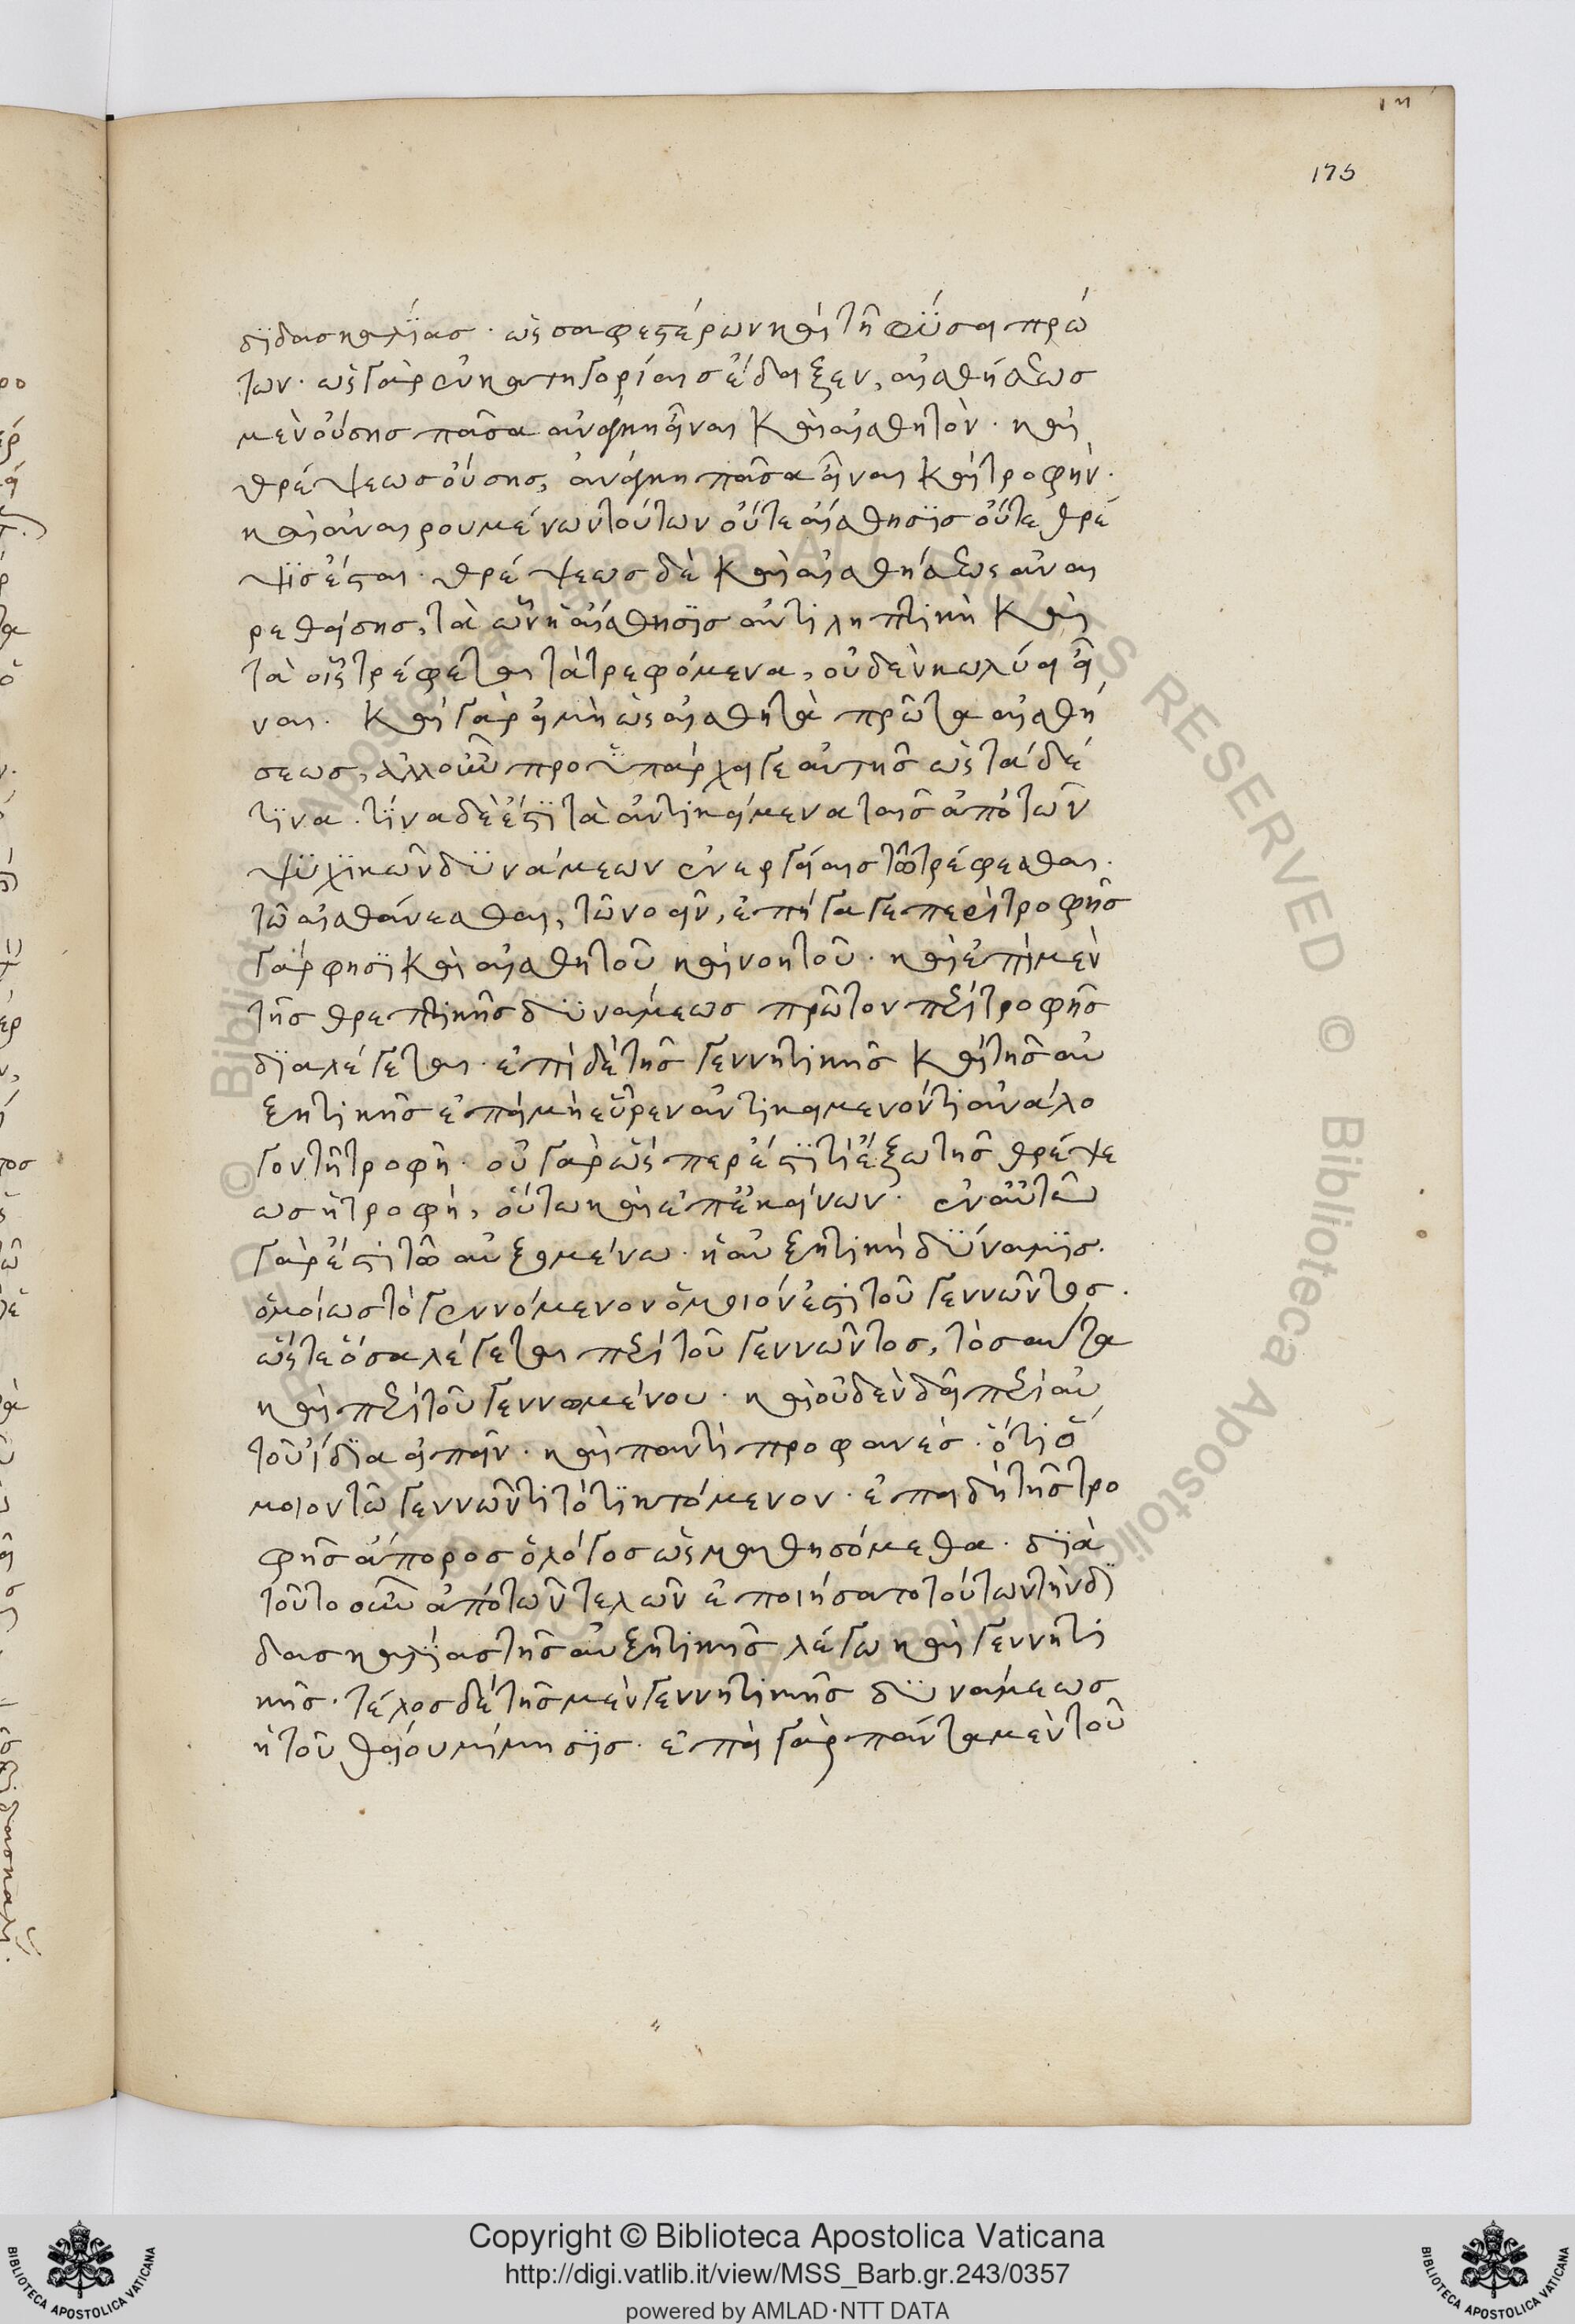 ιη
175
διδασκαλίας· ὡς σαφεστέρων καὶ τῇ φύσει πρώ
των· ὡς γὰρ ἐν κατηγορίαις ἔδειξεν, αἰσθήσεως
μὲν οὔσης πᾶσα ἀνάγκη εἶναι καὶ αἰσθητόν· καὶ
θρέψεως οὔσης, ἀνάγκη πᾶσα εἶναι καὶ τροφήν·
καὶ ἀναιρουμένων τούτων οὔτε αἴσθησις οὔτε θρέ
ψις ἔσται· θρέψεως δὲ καὶ αἰσθήσεως ἀναι
ρεθείσης, τὰ ὧν ἡ αἴσθησις ἀντιληπτικὴ καὶ
τὰ οἷς τρέφεται τὰ τρεφόμενα, οὐδὲν κωλύει εἶ
ναι· καὶ γὰρ εἰ μὴ ὡς αἰσθητὰ πρῶτα αἰσθή
σεως, ἀλλ' οὖν προϋπάρχει γε αὐτῆς ὡς τάδέ
τινα· τίνα δὲ ἐστὶ τὰ ἀντικείμενα ταῖς ἀπὸ τῶν
ψυχικῶν δυνάμεων ἐνεργείαις τῶ τρέφεσθαι·
τῶ αἰσθάνεσθαι, τῶ νοεῖν, ἐπήγαγε περὶ τροφῆς
γάρ φησι καὶ αἰσθητοῦ καὶ νοητοῦ· καὶ ἐπὶ μὲν
τῆς θρεπτικῆς δυνάμεως πρῶτον περὶ τροφῆς
διαλέγεται· ἐπὶ δὲ τῆς γεννητικῆς καὶ τῆς αὐ
ξητικῆς ἐπεὶ μὴ εὗρεν ἀντικείμενόν τι ἀνάλο
γον τῇ τροφῇ· οὐ γὰρ ὥσπερ ἐστί τι ἔξω τῆς θρέψε
ως ἡ τροφή, οὕτω καὶ ἐπ' ἐκείνων· ἐν αὐτῶ
γὰρ ἐστὶ τῶ αὐξομένω· ἡ αὐξητικὴ δύναμις·
ὁμοίως τὸ γεννόμενον ὅμοιόν ἐστι τοῦ γεννῶντος·
ὥστε ὅσα λέγεται περὶ τοῦ γεννῶντος, τοσαῦτα
καὶ περὶ τοῦ γεννωμένου· καὶ οὐδὲν δεῖ περὶ αὐ
τοῦ ἰδία εἰπεῖν· καὶ παντὶ προφανές· ὅτι ὅ
μοιον τῶ γεννῶντι τὸ τικτόμενον· ἐπειδὴ τῆς τρο
φῆς ἄπορος ὁ λόγος ὡς μαθησόμεθα· διὰ
τοῦτο οὖν ἀπὸ τῶν τελῶν ἐποιήσατο τούτων τὴν δι
δασκαλίας τῆς αὐξητικῆς λέγω καὶ γεννητι
κῆς· τέλος δὲ τῆς μὲν γεννητικῆς δυνάμεως
ἡ τοῦ θείου μίμησις· ἐπεὶ γὰρ πάντα μὲν τοῦ
Copyright © Biblioteca Apostolica Vaticana
http://digi.vatlib.it/view/MSS_Barb.gr.243/0357
powered by AMLAD·NTT DATA